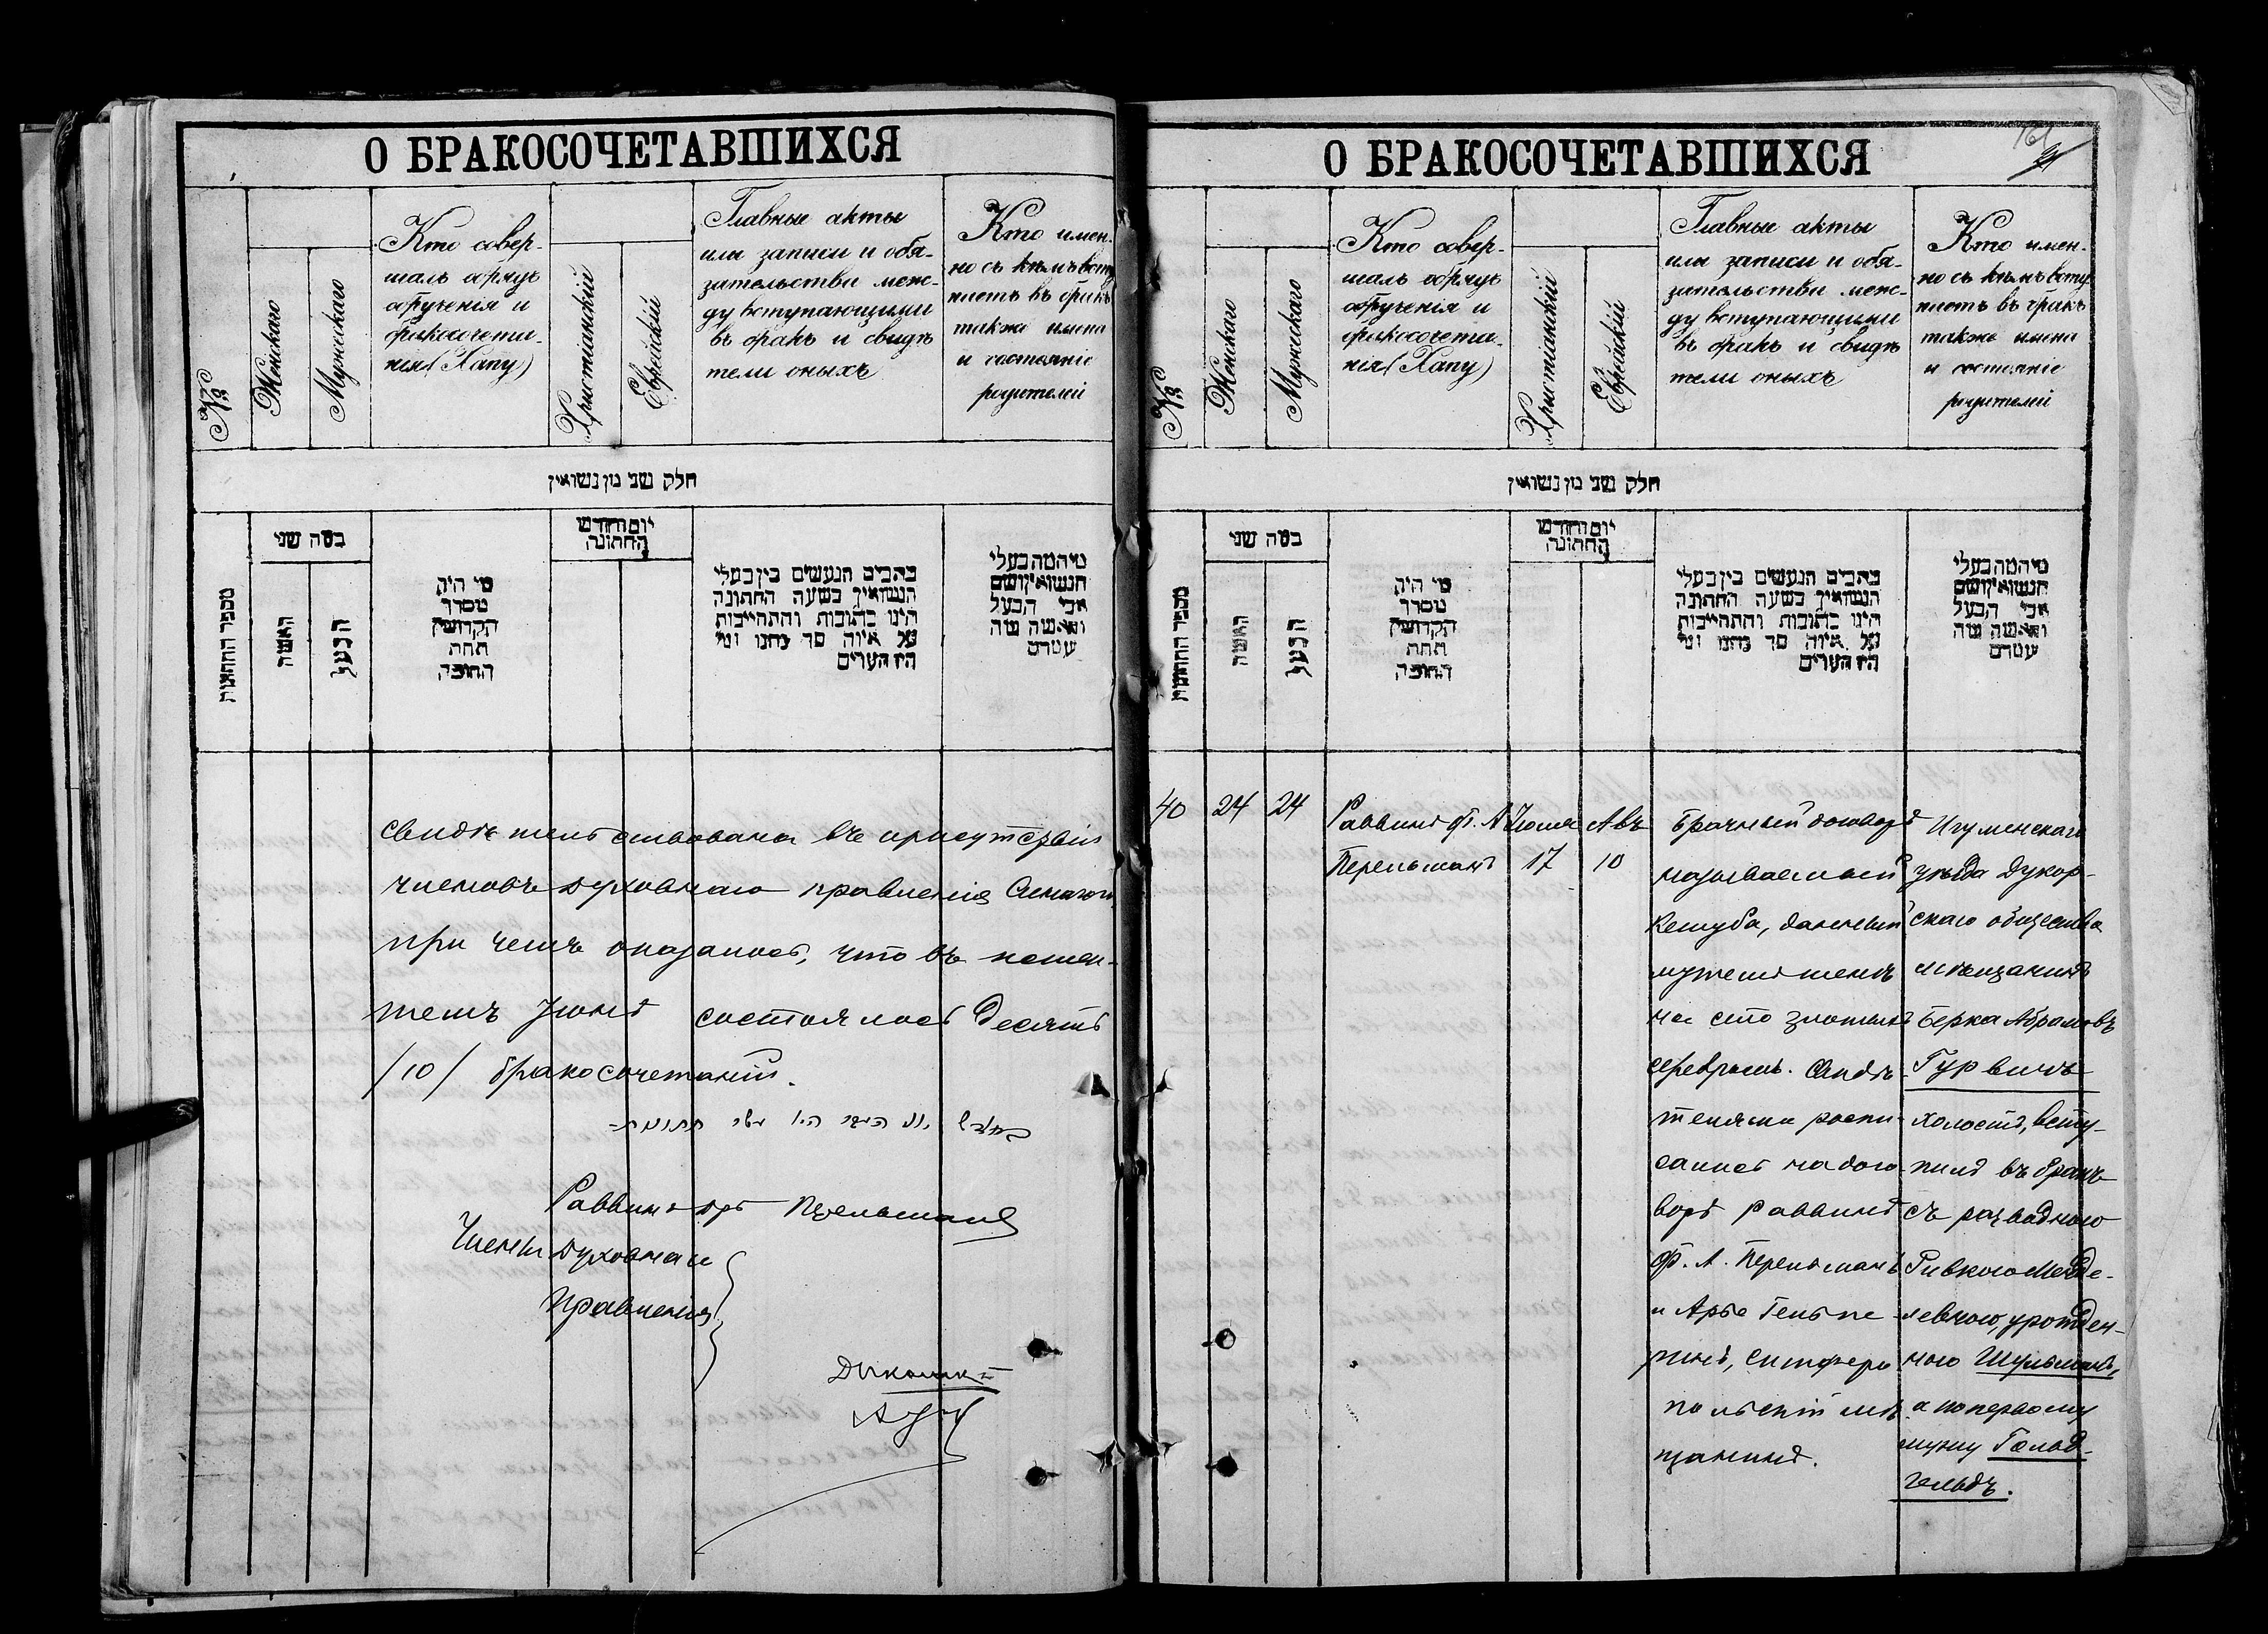 О БРАКОСОЧЕТАВШИХСЯ
№
Женскаго
Мужескаго
Кто совер-
шалъ обрядъ
обрученія и
бракосочета-
нія (Хапу)
Христіанскій
Еврейскій
Главные акты
или записи и обя-
зательства меж-
ду вступающими
въ бракъ и свидѣ
тели оныхъ
Кто имен-
но съ кѣмъ всту
паетъ въ бракъ
также имена
и состояніе
родителей
חלק שני מן נשואין
מספר החתונות
כמה שני
האשה
הבעל
מי היה
מסדר
הקדושין
תחת
החופה
יום וחודש
החתונה
כתבים הנעשים בין בעלי
הנשואין בשעה החתונה
היינו כתובות והתחייבות
על איזה סך נתנו ומי
היו העדים
מי המה בעלי
הנשואין ושם
אבי הבעל
והאשה
свидѣтельствована въ присутствіи
членовъ духовнаго правленія Синагоги,
при чемъ оказалось, что въ истек-
темъ Іюнѣ состоялось десять
/10/ бракосочетаній.
Раввинъ др Перельманъ
Члены духовнаго
Правленія
О БРАКОСОЧЕТАВШИХСЯ
161
№
Женскаго
Мужескаго
Кто совер-
шалъ обрядъ
обрученія и
бракосочета-
нія (Хапу)
Христіанскій
Еврейскій
Главные акты
или записи и обя-
зательства меж-
ду вступающими
въ бракъ и свидѣ
тели оныхъ
Кто имен-
но съ кѣмъ всту
паетъ въ бракъ
также имена
и состояніе
родителей
חלק שני מן נשואין
מספר החתונות
כמה שני
האשה
הבעל
מי היה
מסדר
הקדושין
תחת
החופה
יום וחודש
החתונה
כתבים הנעשים בין בעלי
הנשואין בשעה החתונה
היינו כתובות והתחייבות
על איזה סך נתנו ומי
היו העדים
מי המה בעלי
הנשואין ושם
אבי הבעל
והאשה
40 24 24
Раввинъ Ф. А.
Перельманъ
Іюля
17
Авъ
10
Брачный договоръ
называемый
Кетуба, данный
мужемъ женѣ
на сто злотыхъ
серебромъ. Свидѣ
телями роспи-
сались на дого-
ворѣ раввинъ
Ф. А. Перельманъ
и Арье Гельпе
ринъ, симферо
польскій мѣ
щанинъ.
Игуменскаго
уѣзда Дукор-
скаго общества
мѣщанинъ
Берка Абрамовъ
Гурвичъ
холостъ, всту-
пилъ въ бракъ
съ разводною
Ривкою Менде-
левною, урожден-
ною Шульманъ,
а по первому
мужу Гольд-
гельдъ.